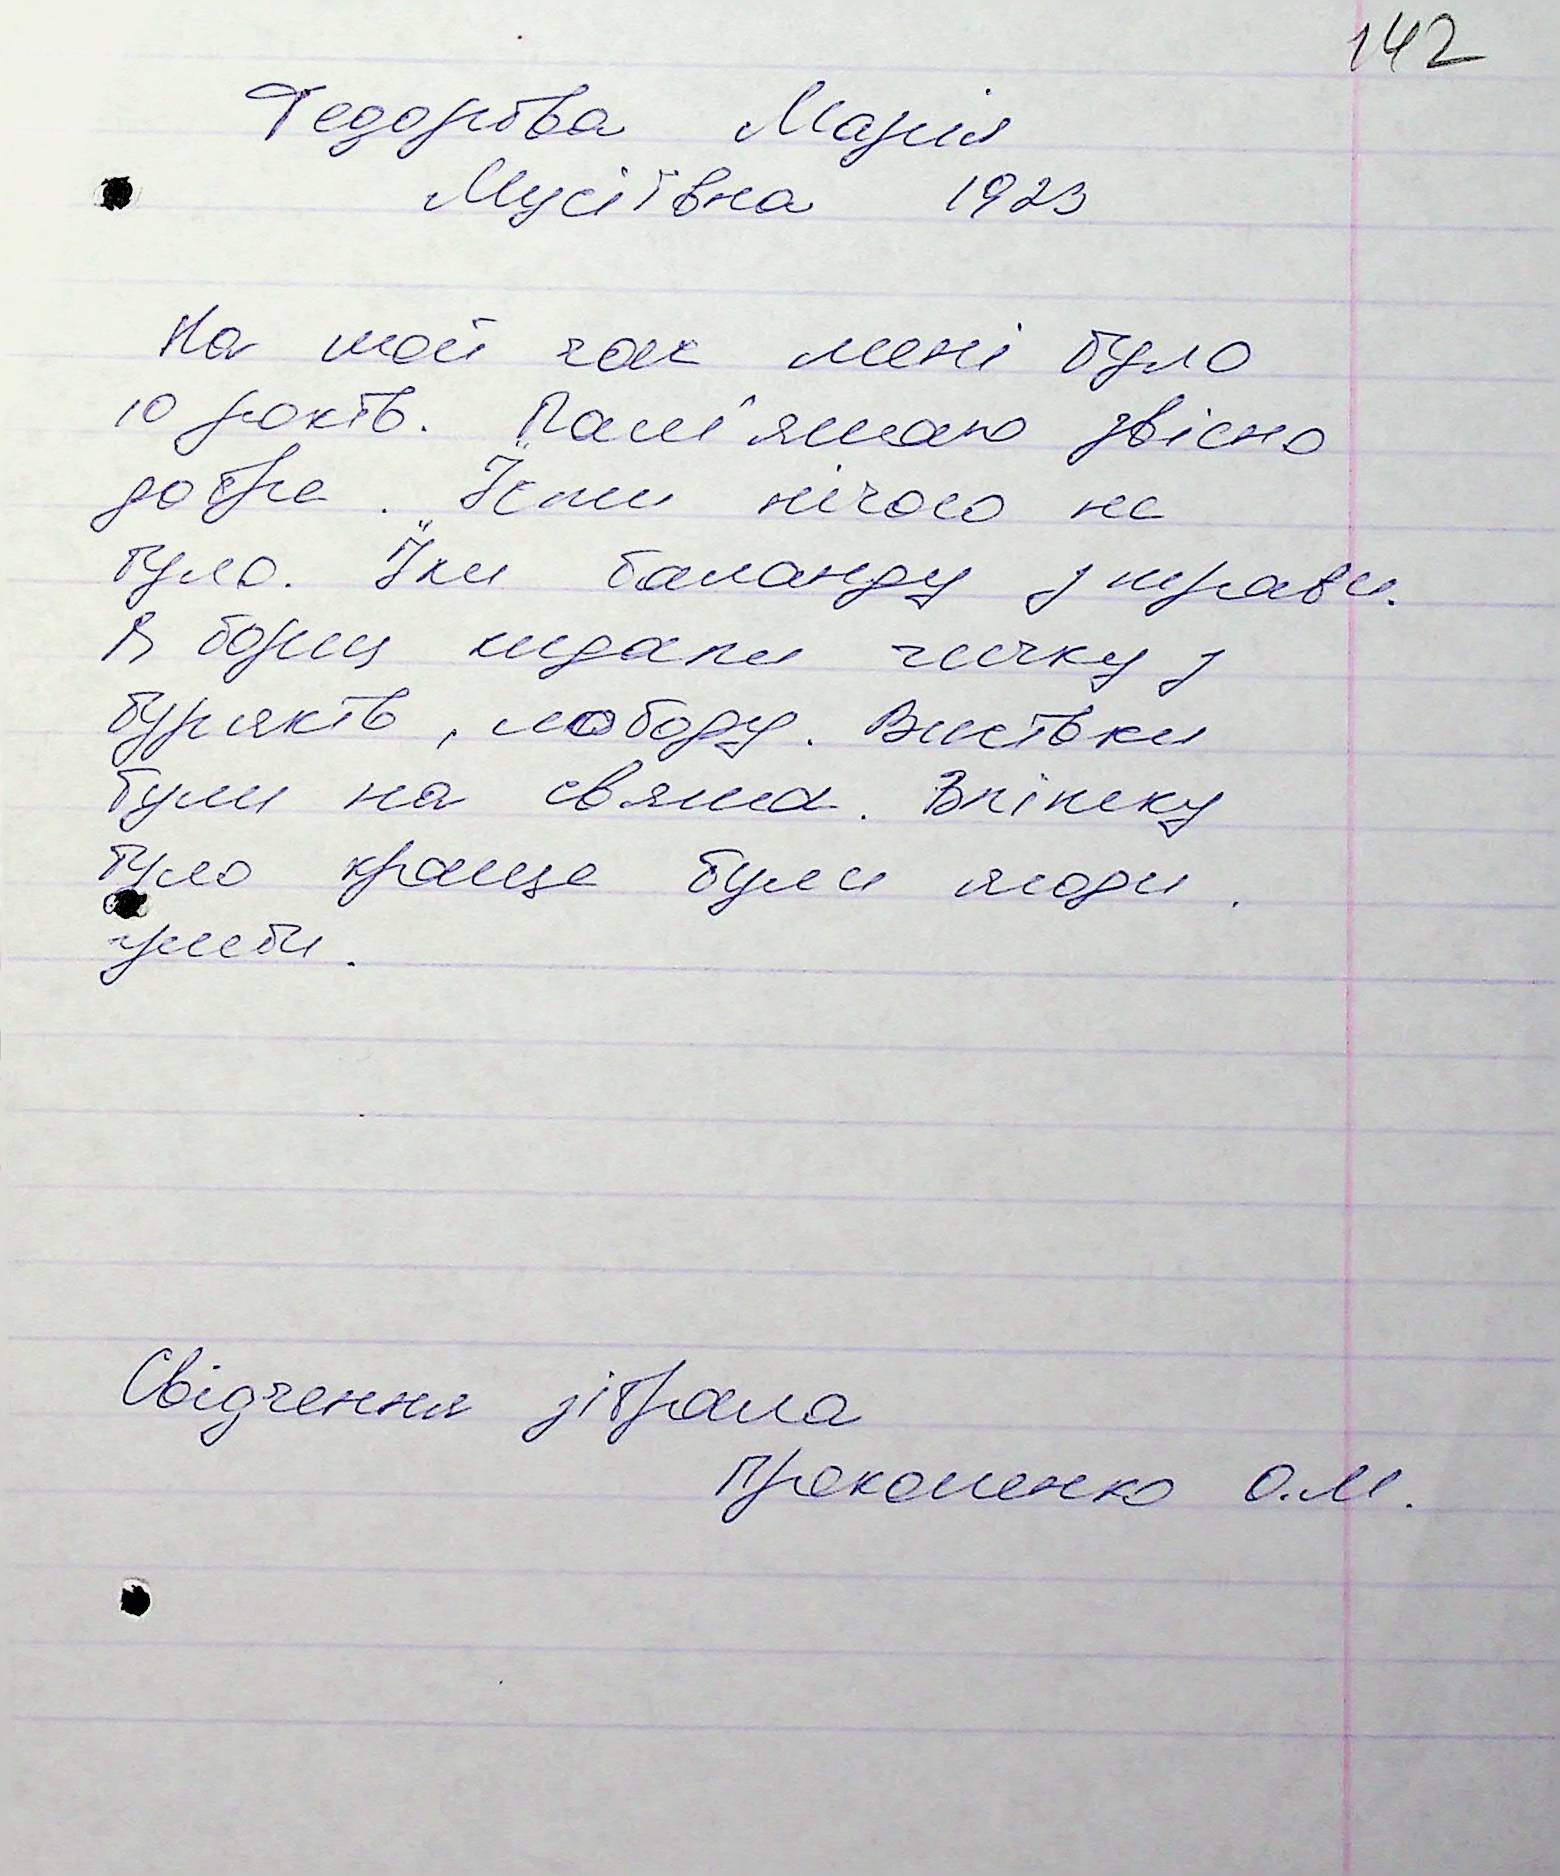 142
Федорова Марія
Мусіївна 1923
На той час мені було
10 років. Пам'ятаю звісно
добре. Їсти нічого не
було. Їли баланду з трави.
В борщ кидали гичку з
буряків, лободу. Вистівки
були на свята. Влітку
було краще були ягоди.
гриби.
Свідчення зібрала
Прокопенко О.М.